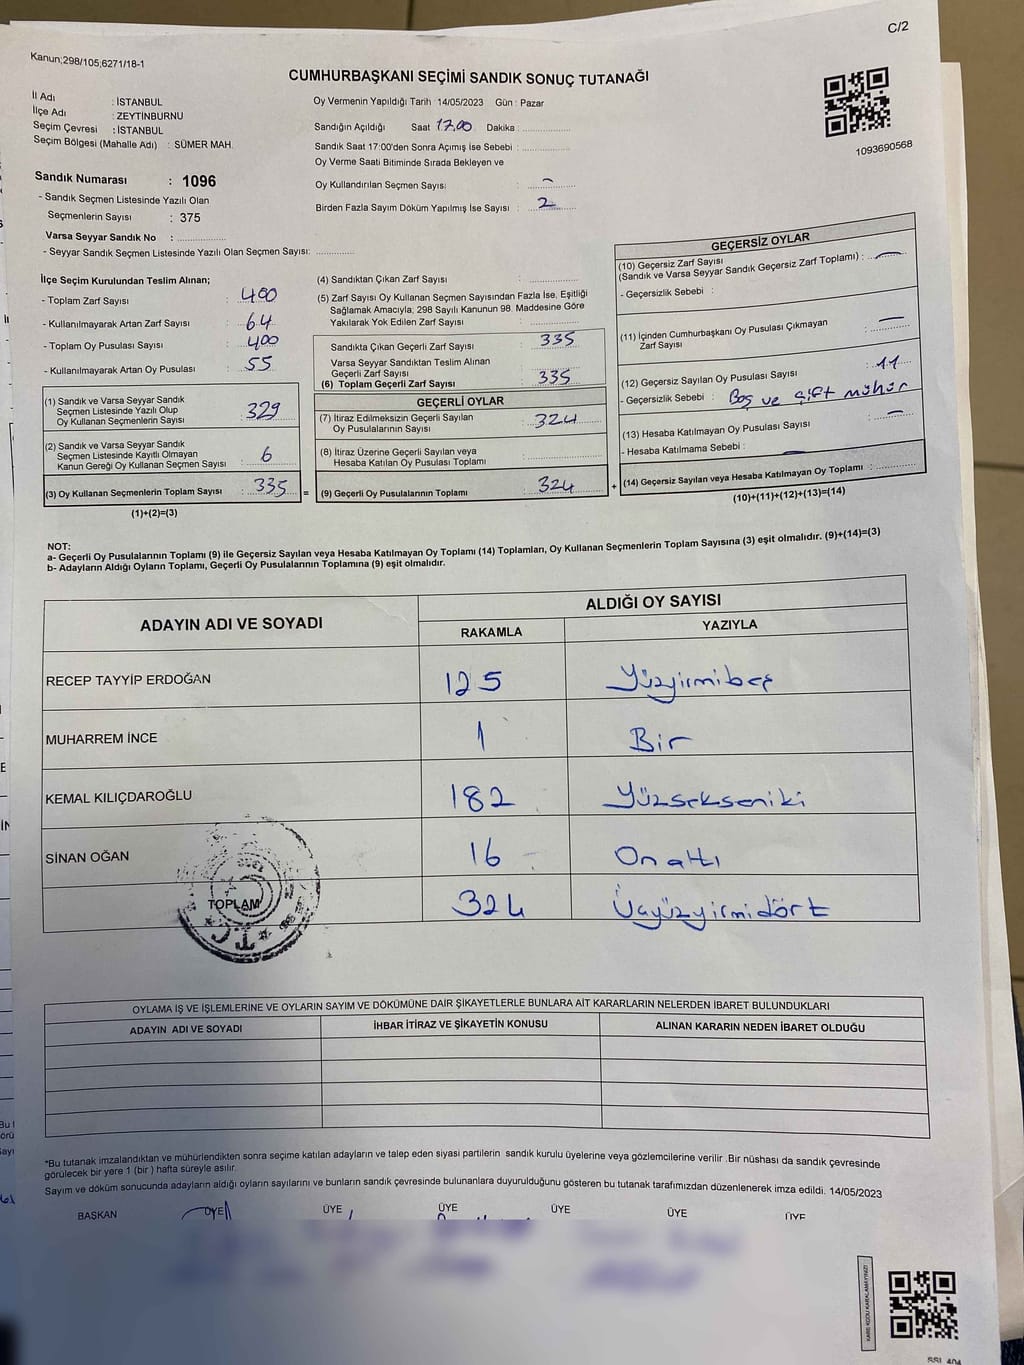 C/2
Kanun;298/105;6271/18-1
CUMHURBAŞKANI SEÇİMİ SANDIK SONUÇ TUTANAĞI
İl Adı : İSTANBUL
İlçe Adı : ZEYTİNBURNU
Seçim Çevresi : İSTANBUL
Seçim Bölgesi (Mahalle Adı) : SÜMER MAH.
Oy Vermenin Yapıldığı Tarih : 14/05/2023 Gün : Pazar
Sandığın Açıldığı Saat 17.00 Dakika :
Sandık Saat 17:00'den Sonra Açımış İse Sebebi :
Oy Verme Saati Bitiminde Sırada Bekleyen ve
Oy Kullandırılan Seçmen Sayısı : -
Birden Fazla Sayım Döküm Yapılmış İse Sayısı : 2
1093690568
Sandık Numarası : 1096
- Sandık Seçmen Listesinde Yazılı Olan
Seçmenlerin Sayısı : 375
Varsa Seyyar Sandık No :
- Seyyar Sandık Seçmen Listesinde Yazılı Olan Seçmen Sayısı:
İlçe Seçim Kurulundan Teslim Alınan;
- Toplam Zarf Sayısı : 400
- Kullanılmayarak Artan Zarf Sayısı : 64
- Toplam Oy Pusulası Sayısı : 400
- Kullanılmayarak Artan Oy Pusulası : 55
(1) Sandık ve Varsa Seyyar Sandık
Seçmen Listesinde Yazılı Olup
Oy Kullanan Seçmenlerin Sayısı : 329
(2) Sandık ve Varsa Seyyar Sandık
Seçmen Listesinde Kayıtlı Olmayan
Kanun Gereği Oy Kullanan Seçmen Sayısı : 6
(3) Oy Kullanan Seçmenlerin Toplam Sayısı : 335
(1)+(2)=(3)
=
(4) Sandıktan Çıkan Zarf Sayısı :
(5) Zarf Sayısı Oy Kullanan Seçmen Sayısından Fazla İse, Eşitliği
Sağlamak Amacıyla; 298 Sayılı Kanunun 98. Maddesine Göre
Yakılarak Yok Edilen Zarf Sayısı :
Sandıkta Çıkan Geçerli Zarf Sayısı : 335
Varsa Seyyar Sandıktan Teslim Alınan
Geçerli Zarf Sayısı :
(6) Toplam Geçerli Zarf Sayısı : 335
GEÇERLİ OYLAR
(7) İtiraz Edilmeksizin Geçerli Sayılan
Oy Pusulalarının Sayısı : 324
(8) İtiraz Üzerine Geçerli Sayılan veya
Hesaba Katılan Oy Pusulası Toplamı :
(9) Geçerli Oy Pusulalarının Toplamı : 324
+
GEÇERSİZ OYLAR
(10) Geçersiz Zarf Sayısı
(Sandık ve Varsa Seyyar Sandık Geçersiz Zarf Toplamı) : -
- Geçersizlik Sebebi :
(11) İçinden Cumhurbaşkanı Oy Pusulası Çıkmayan
Zarf Sayısı : -
(12) Geçersiz Sayılan Oy Pusulası Sayısı : 11
- Geçersizlik Sebebi : Boş ve çift mühür
(13) Hesaba Katılmayan Oy Pusulası Sayısı : -
- Hesaba Katılmama Sebebi : -
(14) Geçersiz Sayılan veya Hesaba Katılmayan Oy Toplamı :
(10)+(11)+(12)+(13)=(14)
NOT:
a- Geçerli Oy Pusulalarının Toplamı (9) ile Geçersiz Sayılan veya Hesaba Katılmayan Oy Toplamı (14) Toplamları, Oy Kullanan Seçmenlerin Toplam Sayısına (3) eşit olmalıdır. (9)+(14)=(3)
b- Adayların Aldığı Oyların Toplamı, Geçerli Oy Pusulalarının Toplamına (9) eşit olmalıdır.
ADAYIN ADI VE SOYADI
ALDIĞI OY SAYISI
RAKAMLA YAZIYLA
RECEP TAYYİP ERDOĞAN 125 Yüzyirmibeş
MUHARREM İNCE 1 Bir
KEMAL KILIÇDAROĞLU 182 Yüzsekseniki
SİNAN OĞAN 16 Onaltı
TOPLAM 324 Üçyüzyirmidört
T.C.
OYLAMA İŞ VE İŞLEMLERİNE VE OYLARIN SAYIM VE DÖKÜMÜNE DAİR ŞİKAYETLERLE BUNLARA AİT KARARLARIN NELERDEN İBARET BULUNDUKLARI
ADAYIN ADI VE SOYADI İHBAR İTİRAZ VE ŞİKAYETİN KONUSU ALINAN KARARIN NEDEN İBARET OLDUĞU
*Bu tutanak imzalandıktan ve mühürlendikten sonra seçime katılan adayların ve talep eden siyasi partilerin sandık kurulu üyelerine veya gözlemcilerine verilir .Bir nüshası da sandık çevresinde
görülecek bir yere 1 (bir ) hafta süreyle asılır.
Sayım ve döküm sonucunda adayların aldığı oyların sayılarını ve bunların sandık çevresinde bulunanlara duyurulduğunu gösteren bu tutanak tarafımızdan düzenlenerek imza edildi. 14/05/2023
BAŞKAN ÜYE ÜYE ÜYE ÜYE ÜYE ÜYE